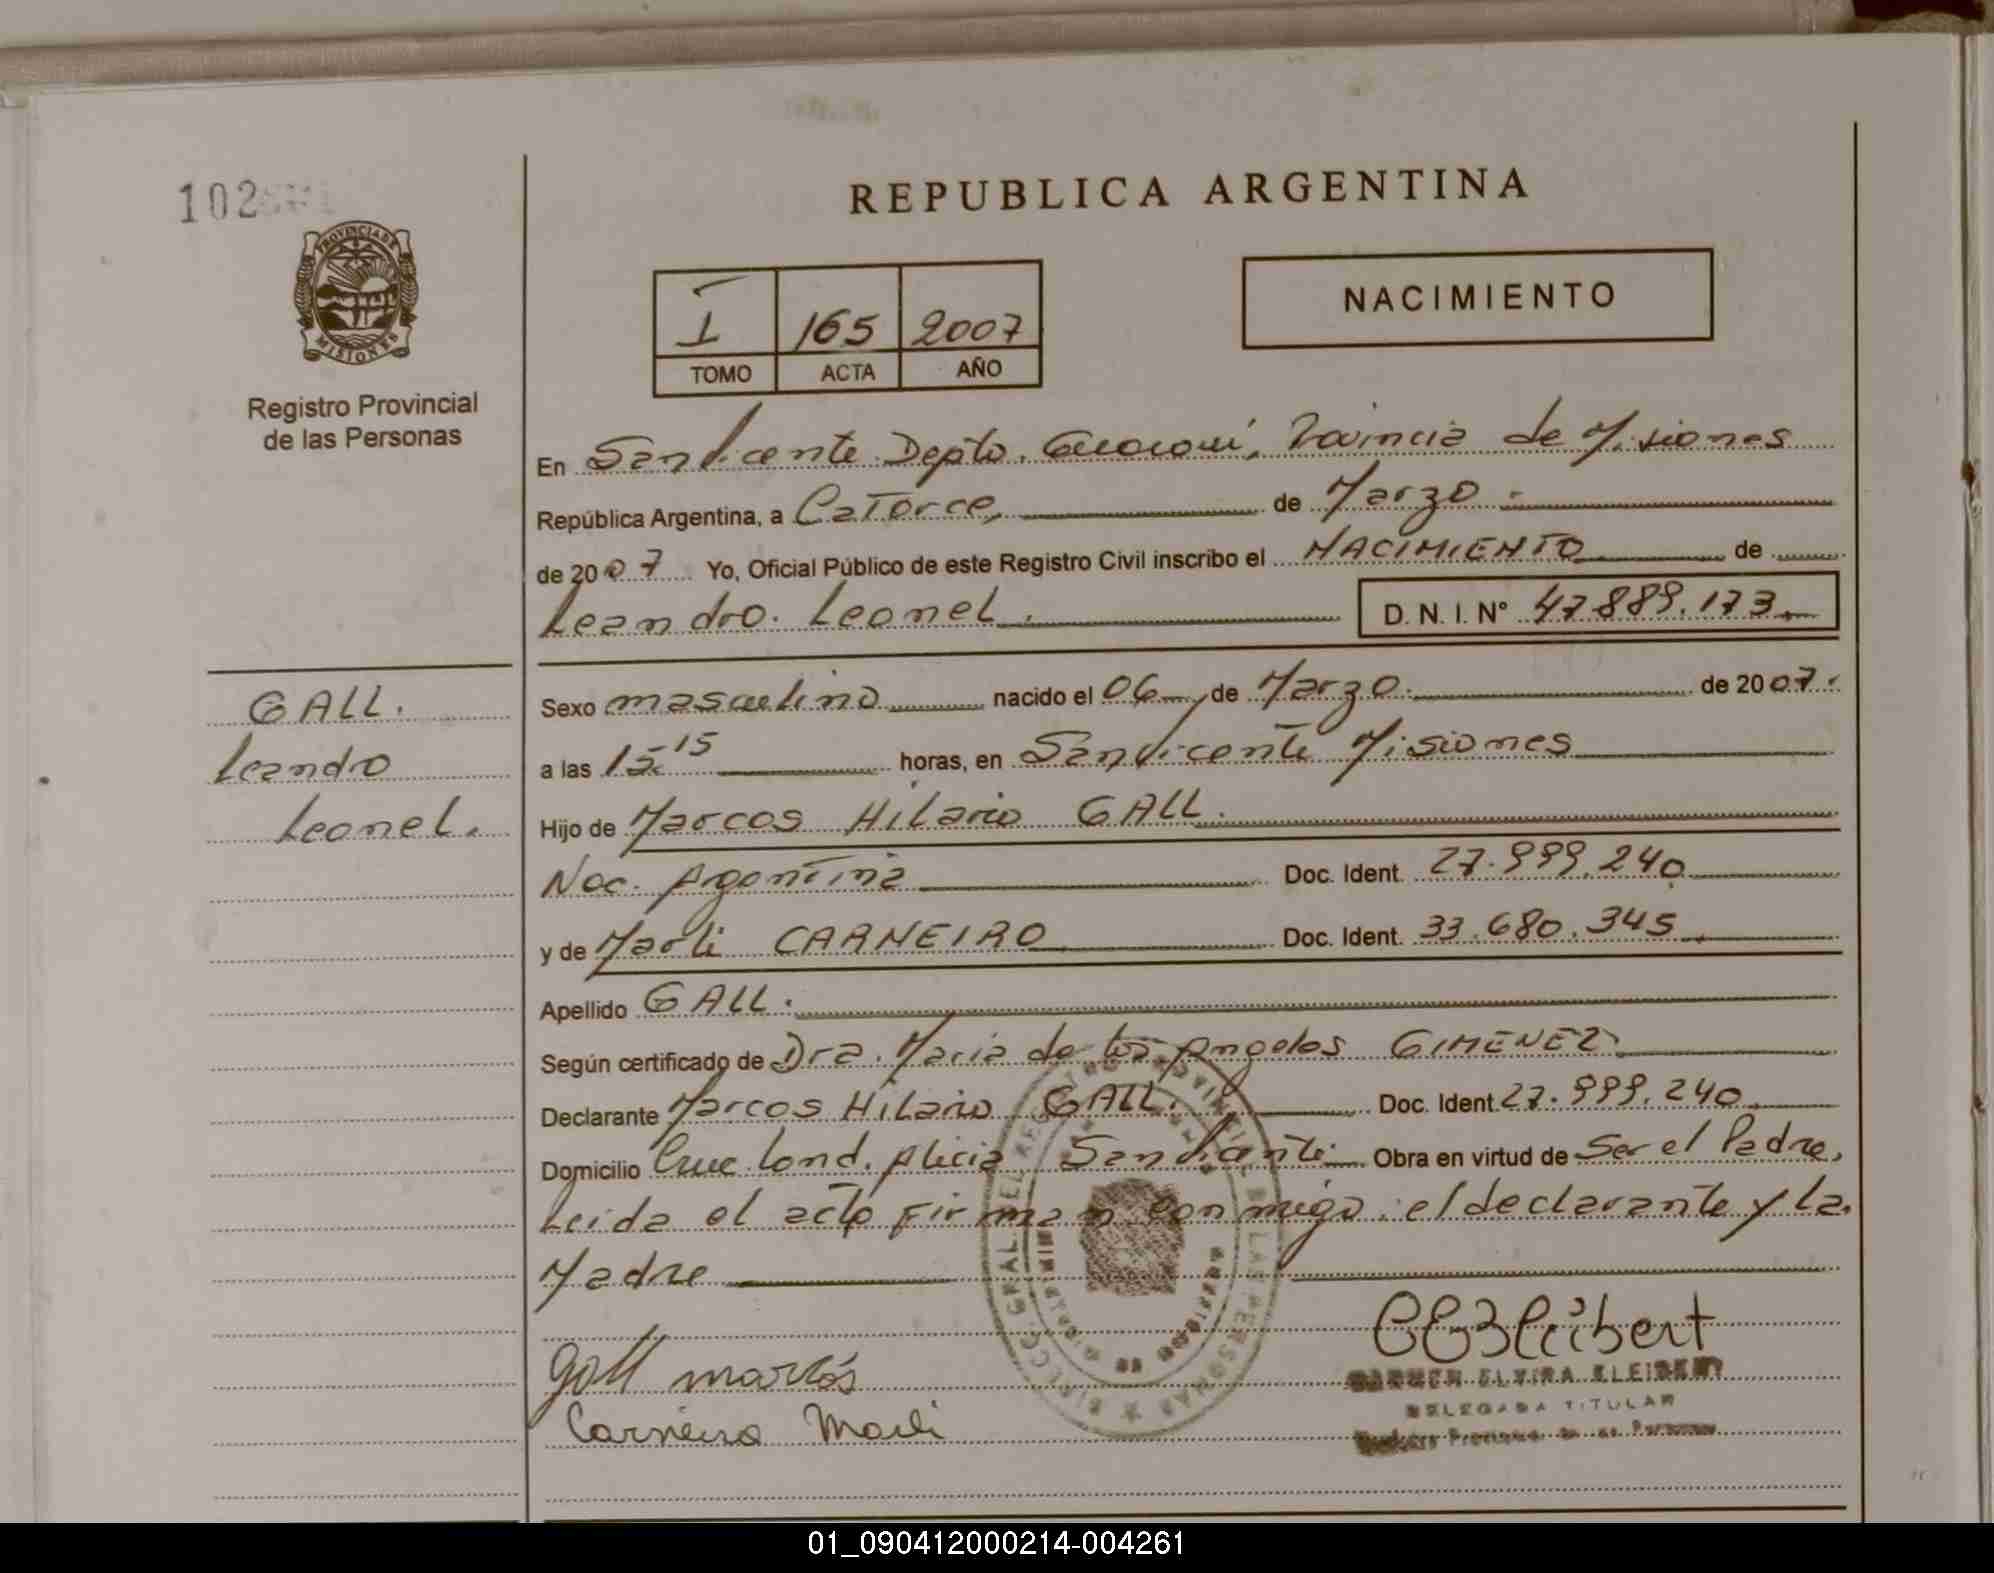 102
REPUBLICA ARGENTINA
PROVINCIA DE
MISIONES
Registro Provincial
de las Personas
I 165 2007
TOMO ACTA AÑO
NACIMIENTO
En San Vicente Depto. Guaraní, Provincia de Misiones
República Argentina, a Catorce, de Marzo.
de 2007 Yo, Oficial Público de este Registro Civil inscribo el NACIMIENTO de
Leandro Leonel. D. N. I. N° 47.889.173
GALL.
Leandro
Leonel.
Sexo masculino nacido el 06 de Marzo. de 2007.
a las 15.15 horas, en San Vicente Misiones
Hijo de Marcos Hilario GALL.
Nac. Argentina Doc. Ident. 27.999.240
y de Marli CARNEIRO Doc. Ident. 33.680.345
Apellido GALL.
Según certificado de Dra. Maria de los Angeles GIMENEZ
Declarante Marcos Hilario GALL. Doc. Ident. 27.999.240
Domicilio Cruce Lond. Alicia San Vicente Obra en virtud de Ser el Padre,
Leida el acta Firman conmigo el declarante y La
Madre
Gall marcos
Carneiro Marli
CARMEN ELVIRA KLEIBERT
DELEGADA TITULAR
Registro Provincial de las Personas
01_090412000214-004261